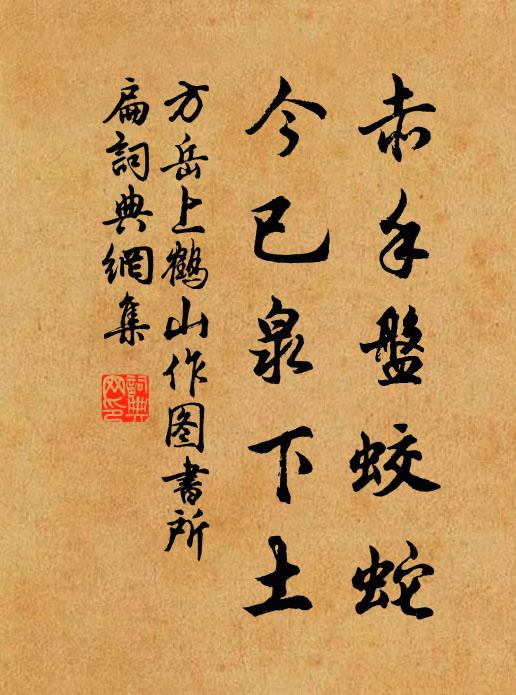 赤手盤蛟蛇
今已泉下土
方岳上鶴山作图書所
扁詞典網集
詞典網印